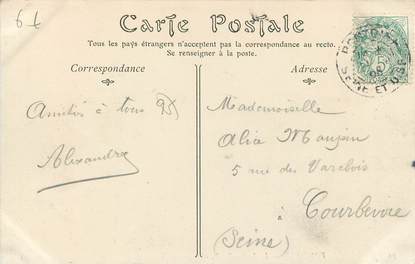 Carte Postale
Tous les pays étrangers n'acceptent pas la correspondance au recto.
Se renseigner à la poste.
Correspondance
Adresse
Amitiés à tous
Alexandre
Mademoiselle
Alia Maujan
5 rue des
à
Courbevoie
(Seine)
SEINE ET OISE
5